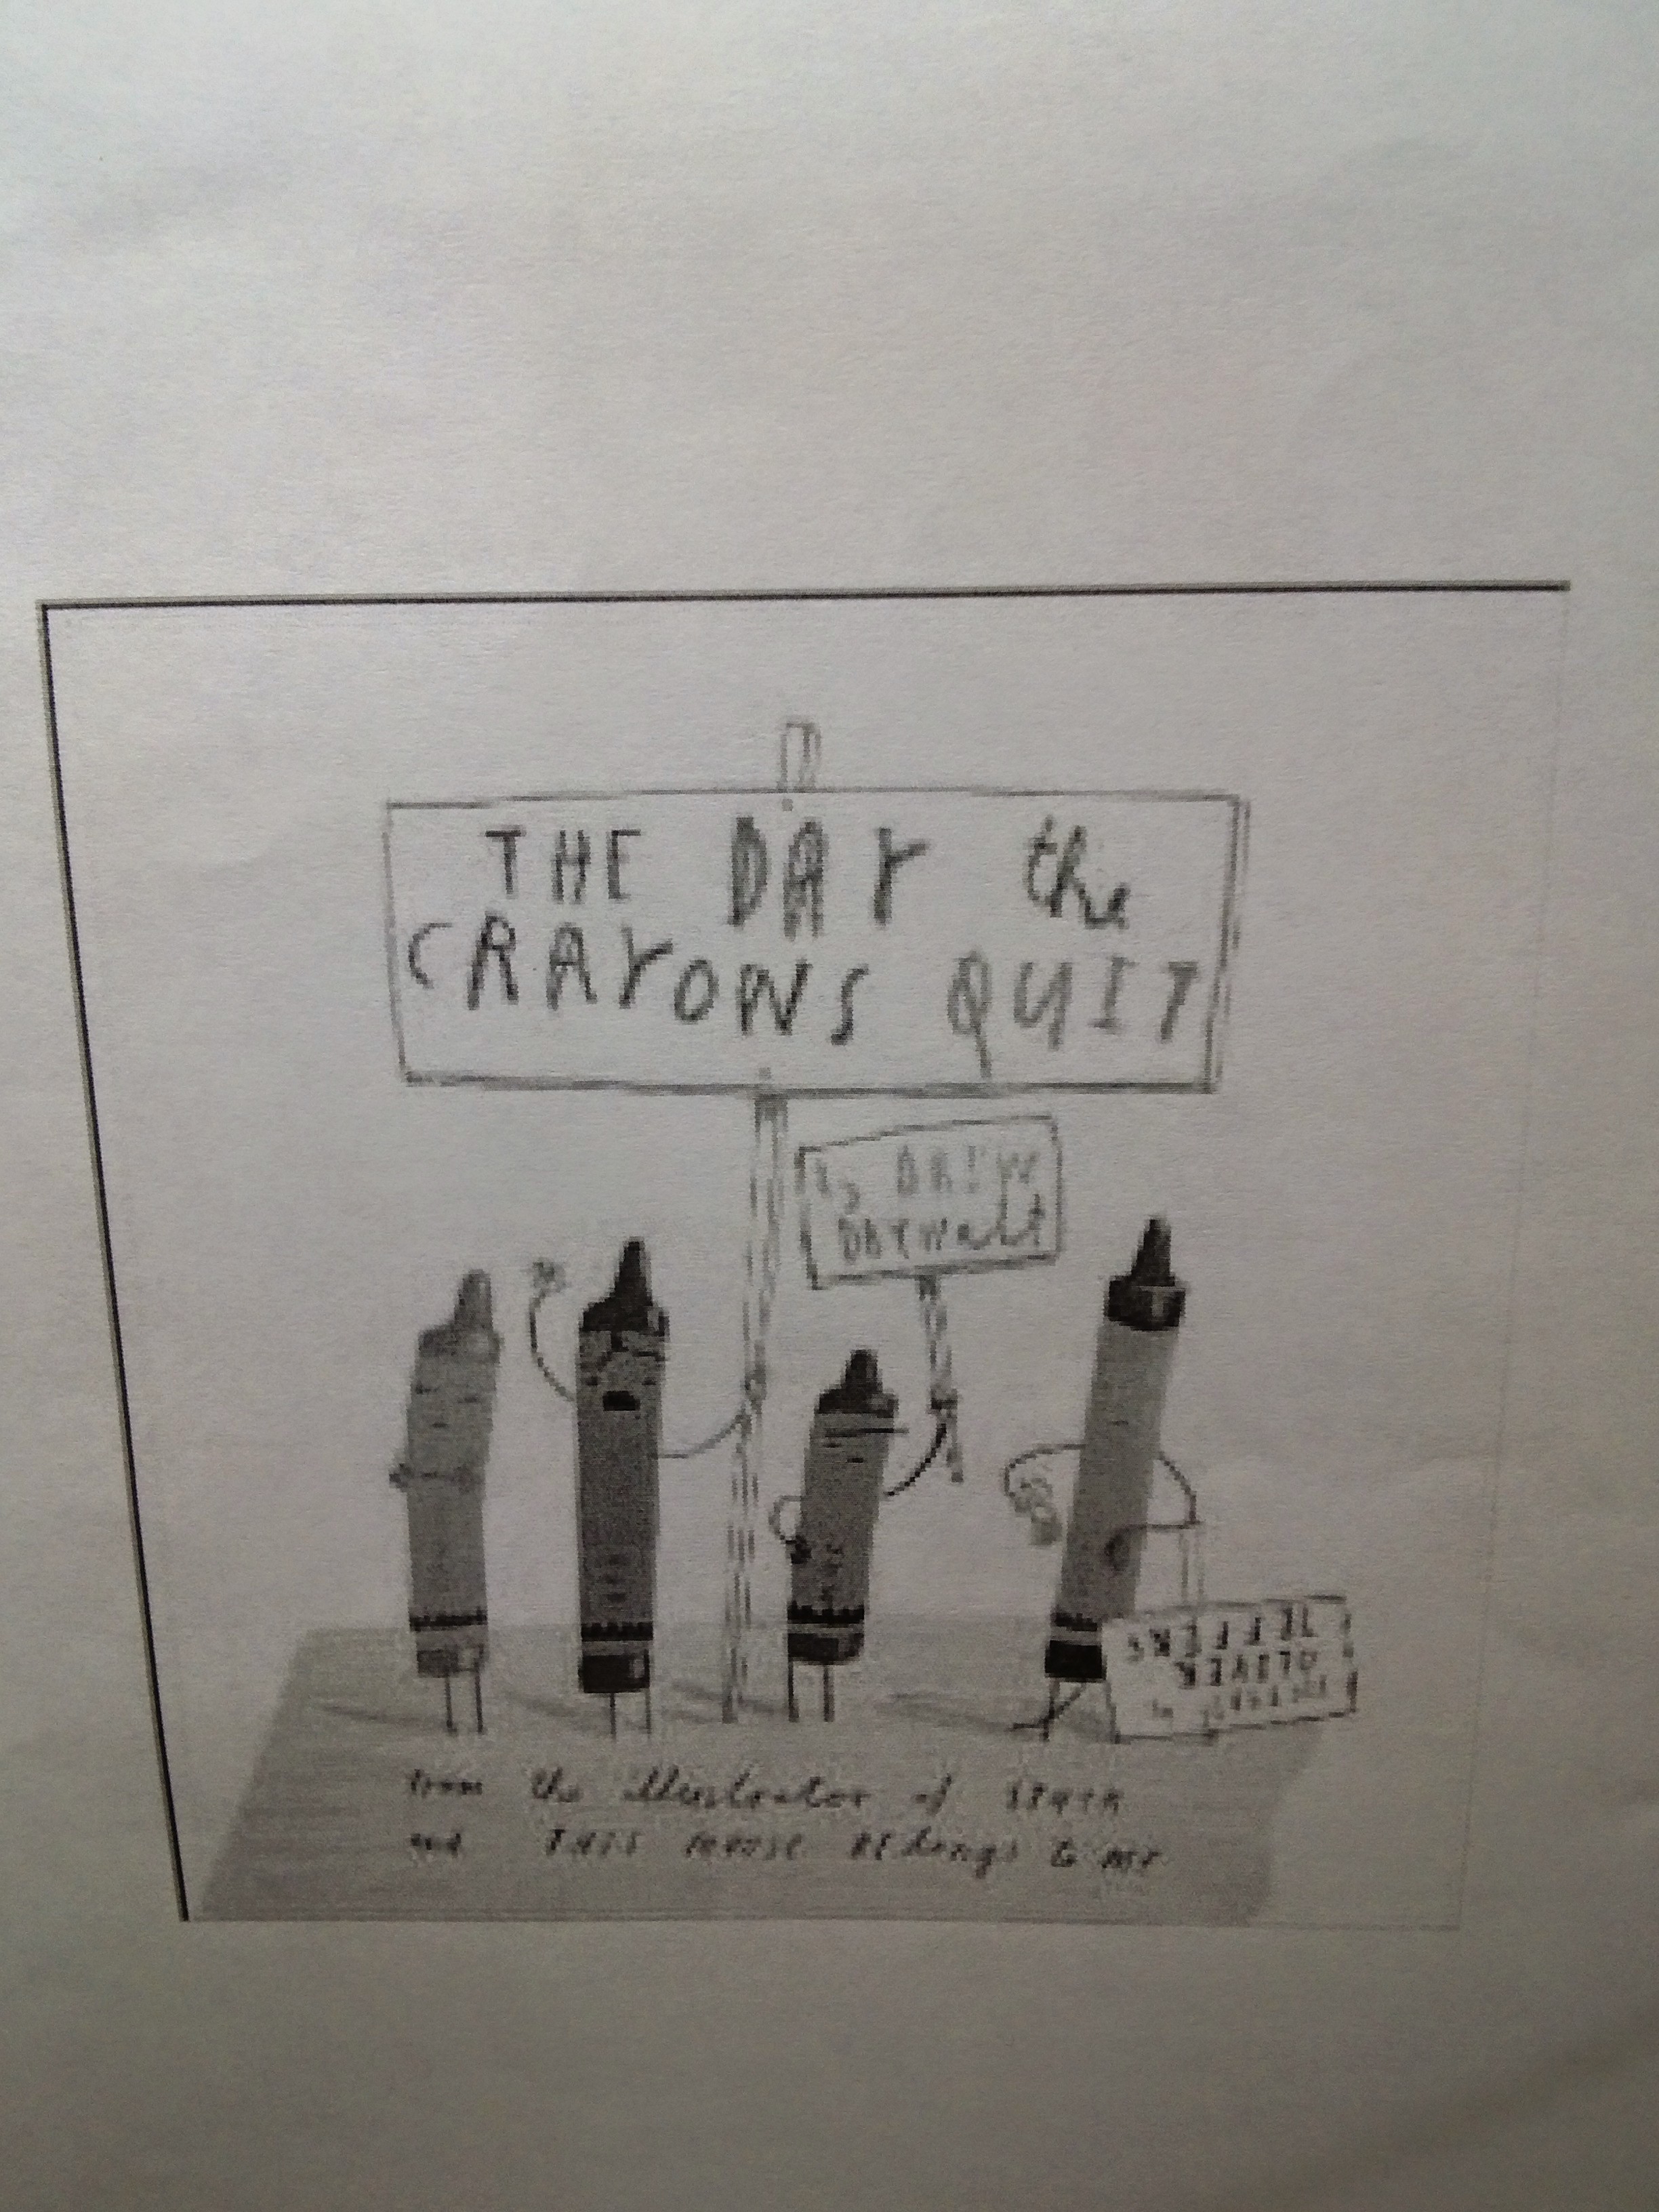 THE DAY the
CRAYONS QUIT
by DREW
DAYWALT
JEFFERS
OLIVER
from the illustrator of STUCK
and THIS MOOSE BELONGS to ME